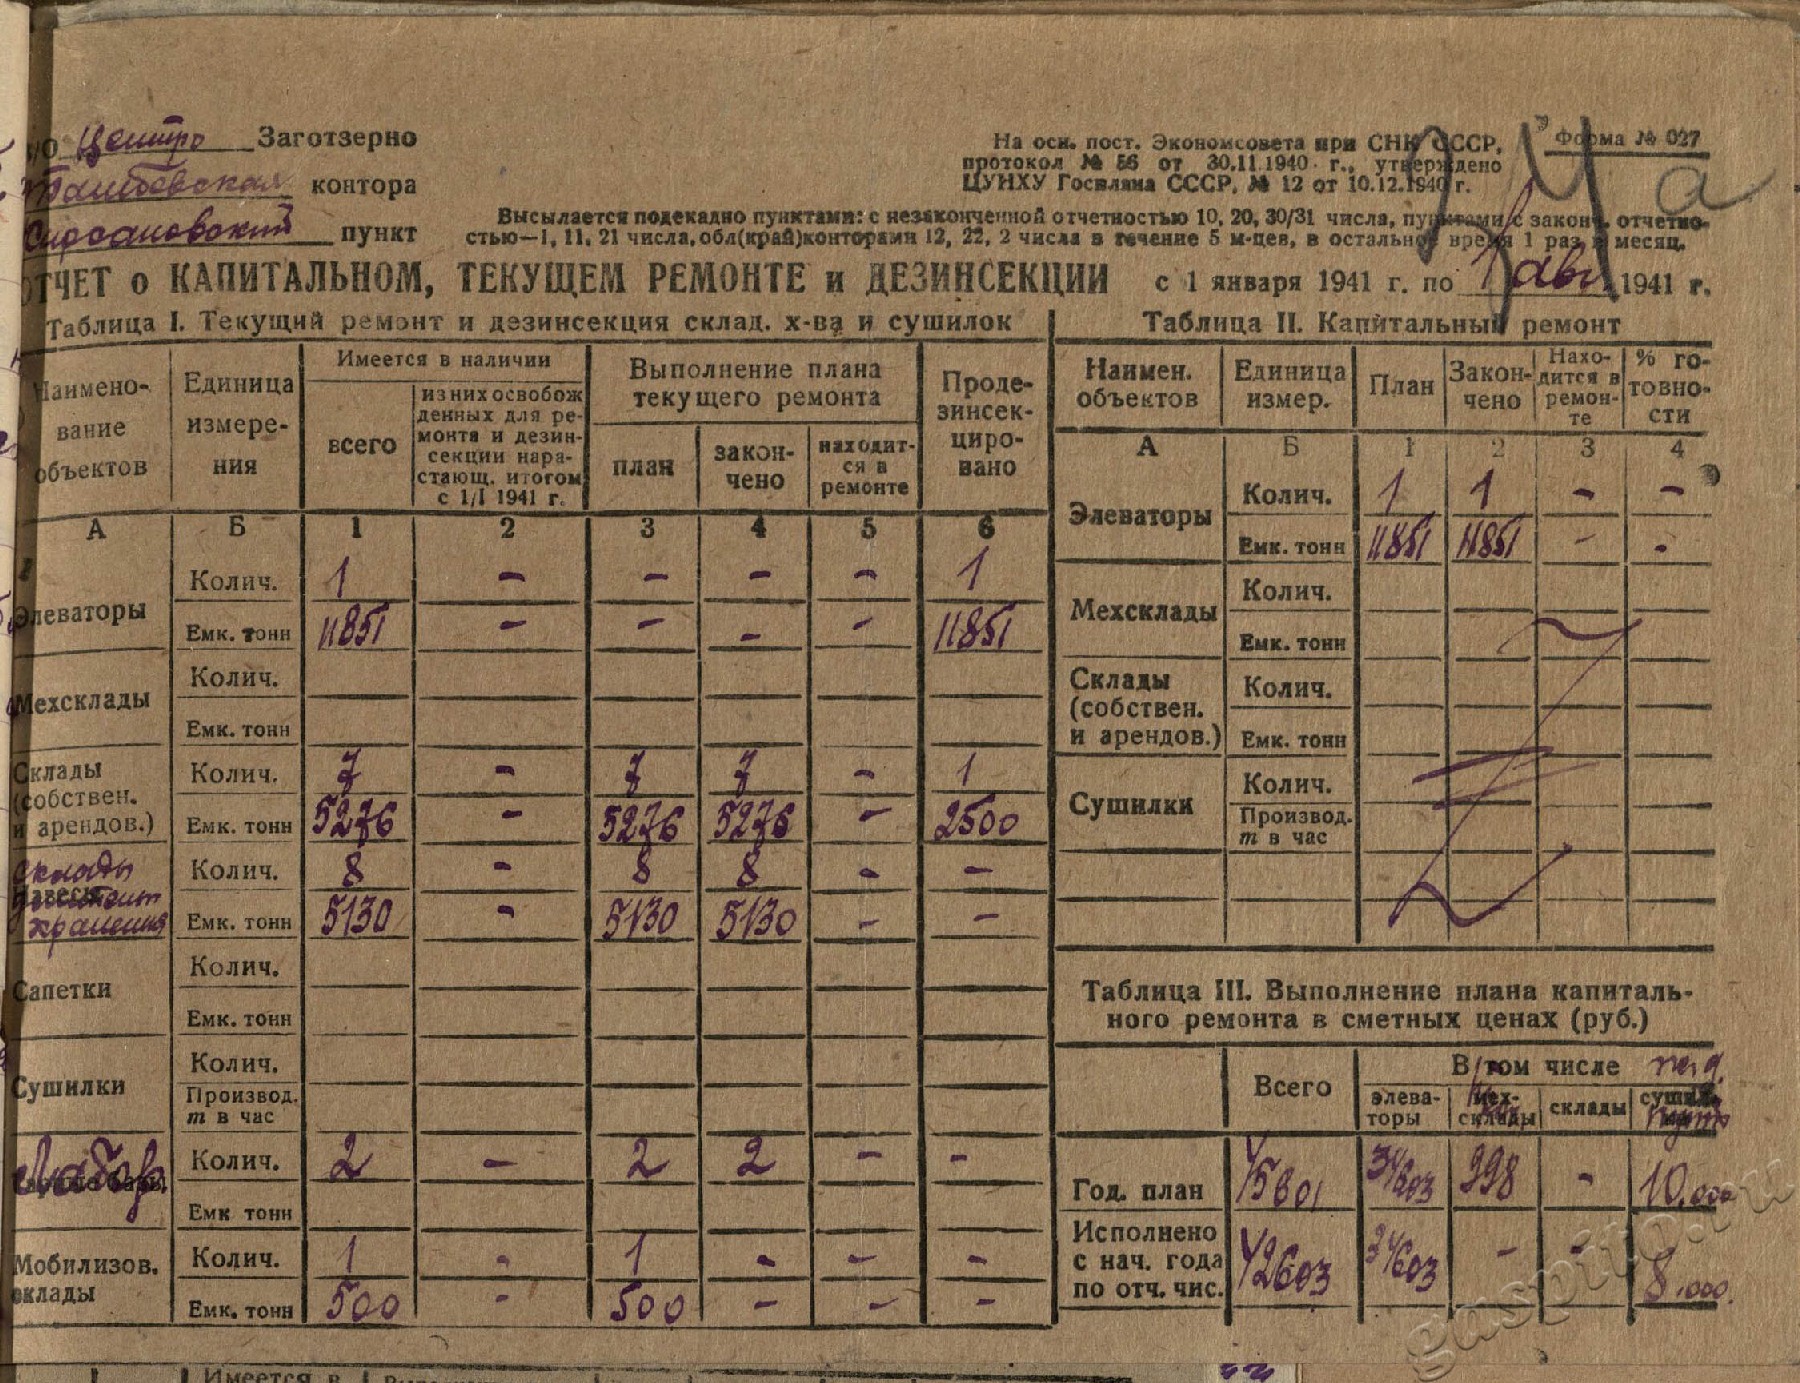 В/О Центр Заготзерно
Тамбовская контора
Кирсановский пункт
На осн. пост. Экономсовета при СНК СССР,
протокол № 56 от 30.11.1940 г., утверждено
ЦУНХУ Госплана СССР, № 12 от 10.12.1940 г.
Форма № 027
а
Высылается подекадно пунктами: с незаконченной отчетностью 10, 20, 30/31 числа, пунктами с законч. отчетно-
стью—1, 11, 21 числа, обл(край)конторами 12, 22, 2 числа в течение 5 м-цев, в остальное время 1 раз в месяц.
ОТЧЕТ о КАПИТАЛЬНОМ, ТЕКУЩЕМ РЕМОНТЕ и ДЕЗИНСЕКЦИИ с 1 января 1941 г. по 1 авг 1941 г.
Таблица I. Текущий ремонт и дезинсекция склад. х-ва и сушилок
Наимено-
вание
объектов
Единица
измере-
ния
Имеется в наличии
всего
из них освобож
денных для ре-
монта и дезин-
секции нара-
стающ. итогом
с 1/I 1941 г.
Выполнение плана
текущего ремонта
план
закон-
чено
находит-
ся в
ремонте
Проде-
зинсек-
циро-
вано
А Б 1 2 3 4 5 6
Элеваторы
Колич. 1 - - - - 1
Емк. тонн 11851 - - - - 11851
Мехсклады
Колич.
Емк. тонн
Склады
(собствен.
и арендов.)
Колич. 7 - 7 7 - 1
Емк. тонн 5276 - 5276 5276 - 2500
Склады
Навесы
хранения
Колич. 8 - 8 8 - -
Емк. тонн 5130 - 5130 5130 - -
Сапетки
Колич.
Емк. тонн
Сушилки
Колич.
Производ.
т в час
Колич. 2 - 2 2 - -
Емк тонн
Мобилизов.
склады
Колич. 1 - 1 - - -
Емк. тонн 500 - 500 - - -
Таблица II. Капитальный ремонт
Наимен.
объектов
Единица
измер.
План
Закон-
чено
Нахо-
дится в
ремон-
те
% го-
товно-
сти
А Б 1 2 3 4
Элеваторы
Колич. 1 1 - -
Емк. тонн 11851 11851 - -
Мехсклады
Колич.
Емк. тонн
Склады
(собствен.
и арендов.)
Колич.
Емк. тонн
Сушилки
Колич.
Производ.
т в час
Таблица III. Выполнение плана капиталь-
ного ремонта в сметных ценах (руб.)
Всего
В том числе
элева-
торы
мех-
склады
склады
Год. план 45601 34603 998 - 10.000
Исполнено
с нач. года
по отч. чис.
42603 34603 - - 8.000
gaspito.ru
Имеется в